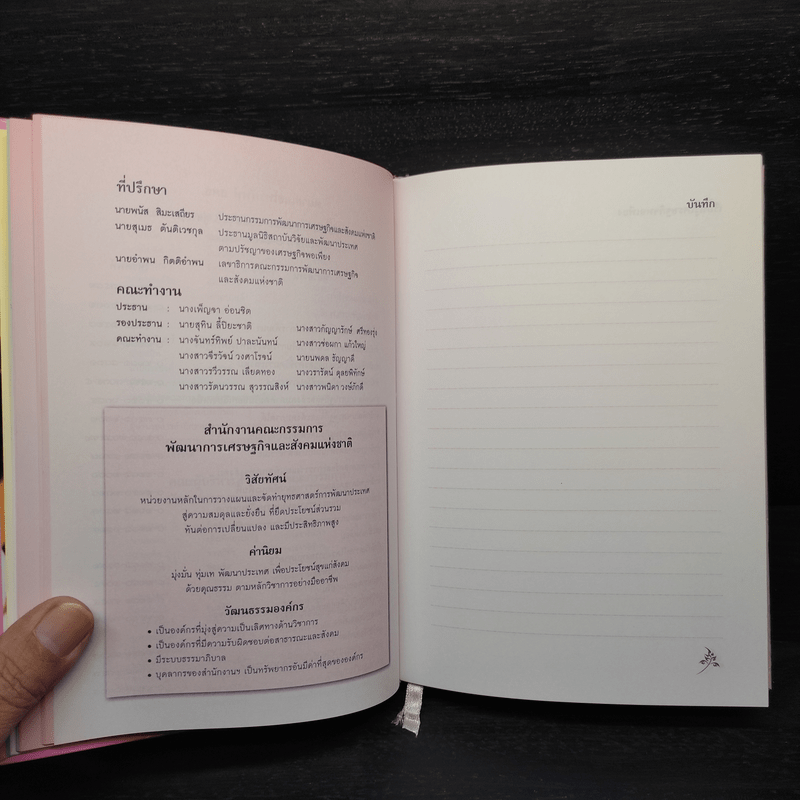 ที่ปรึกษา
นายพนัส สิมะเสถียร ประธานกรรมการพัฒนาการเศรษฐกิจและสังคมแห่งชาติ
นายสุเมธ ตันติเวชกุล ประธานมูลนิธิสถาบันวิจัยและพัฒนาประเทศ
ตามปรัชญาของเศรษฐกิจพอเพียง
นายอำพน กิตติอำพน เลขาธิการคณะกรรมการพัฒนาการเศรษฐกิจ
และสังคมแห่งชาติ
คณะทำงาน
ประธาน : นางเพ็ญจา อ่อนชิต
รองประธาน : นายสุทิน ลี้ปิยะชาติ นางสาวกัญญารักษ์ ศรีทองรุ่ง
คณะทำงาน : นางจันทร์ทิพย์ ปาละนันทน์ นางสาวช่อผกา แก้วใหญ่
นางสาวจีรวัจน์ วงศาโรจน์ นายนพดล ธัญญาดี
นางสาวรวีวรรณ เลียดทอง นางวรารัตน์ ดุลยพิทักษ์
นางสาวรัตนวรรณ สุวรรณสิงห์ นางสาวพนิดา วงษ์ภักดี
สำนักงานคณะกรรมการ
พัฒนาการเศรษฐกิจและสังคมแห่งชาติ
วิสัยทัศน์
หน่วยงานหลักในการวางแผนและจัดทำยุทธศาสตร์การพัฒนาประเทศ
สู่ความสมดุลและยั่งยืน ที่ยึดประโยชน์ส่วนรวม
ทันต่อการเปลี่ยนแปลง และมีประสิทธิภาพสูง
ค่านิยม
มุ่งมั่น ทุ่มเท พัฒนาประเทศ เพื่อประโยชน์สุขแก่สังคม
ด้วยคุณธรรม ตามหลักวิชาการอย่างมืออาชีพ
วัฒนธรรมองค์กร
• เป็นองค์กรที่มุ่งสู่ความเป็นเลิศทางด้านวิชาการ
• เป็นองค์กรที่มีความรับผิดชอบต่อสาธารณะและสังคม
• มีระบบธรรมาภิบาล
• บุคลากรของสำนักงานฯ เป็นทรัพยากรอันมีค่าที่สุดขององค์กร
บันทึก